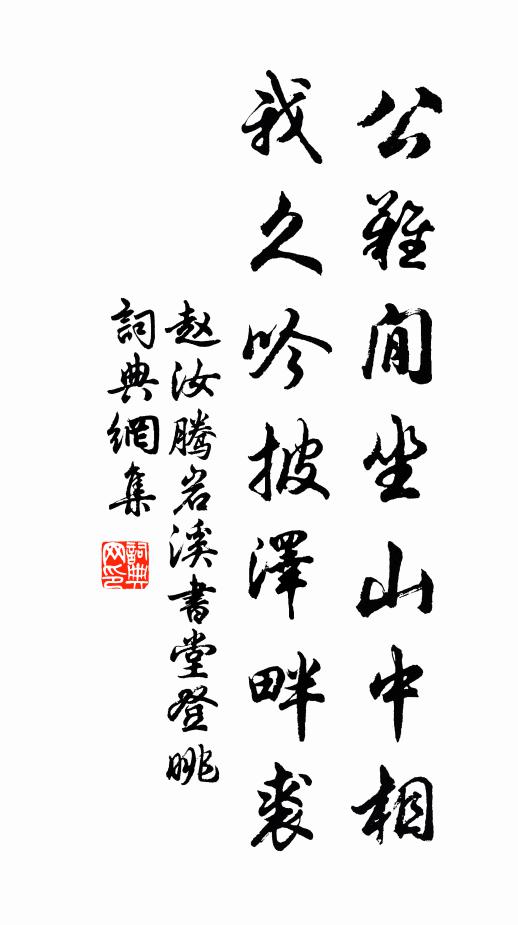 公难閒坐山中相
我久吟披澤畔裘
赵汝腾岩溪書堂登眺
詞典網集
詞典網印